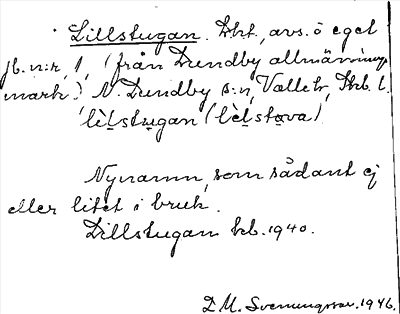 Lillstugan. Lht., avs. o eget
jb.n:r, 1, (från Lundby allmännings-
mark.) N. Lundby s:n, Valle hd, Skb. l.
lèlstugan (lèlstova)
Nynamn, som sådant ej
eller litet i bruk.
Lillstugan kb. 1940.
D. M. Svenungsson. 1946.